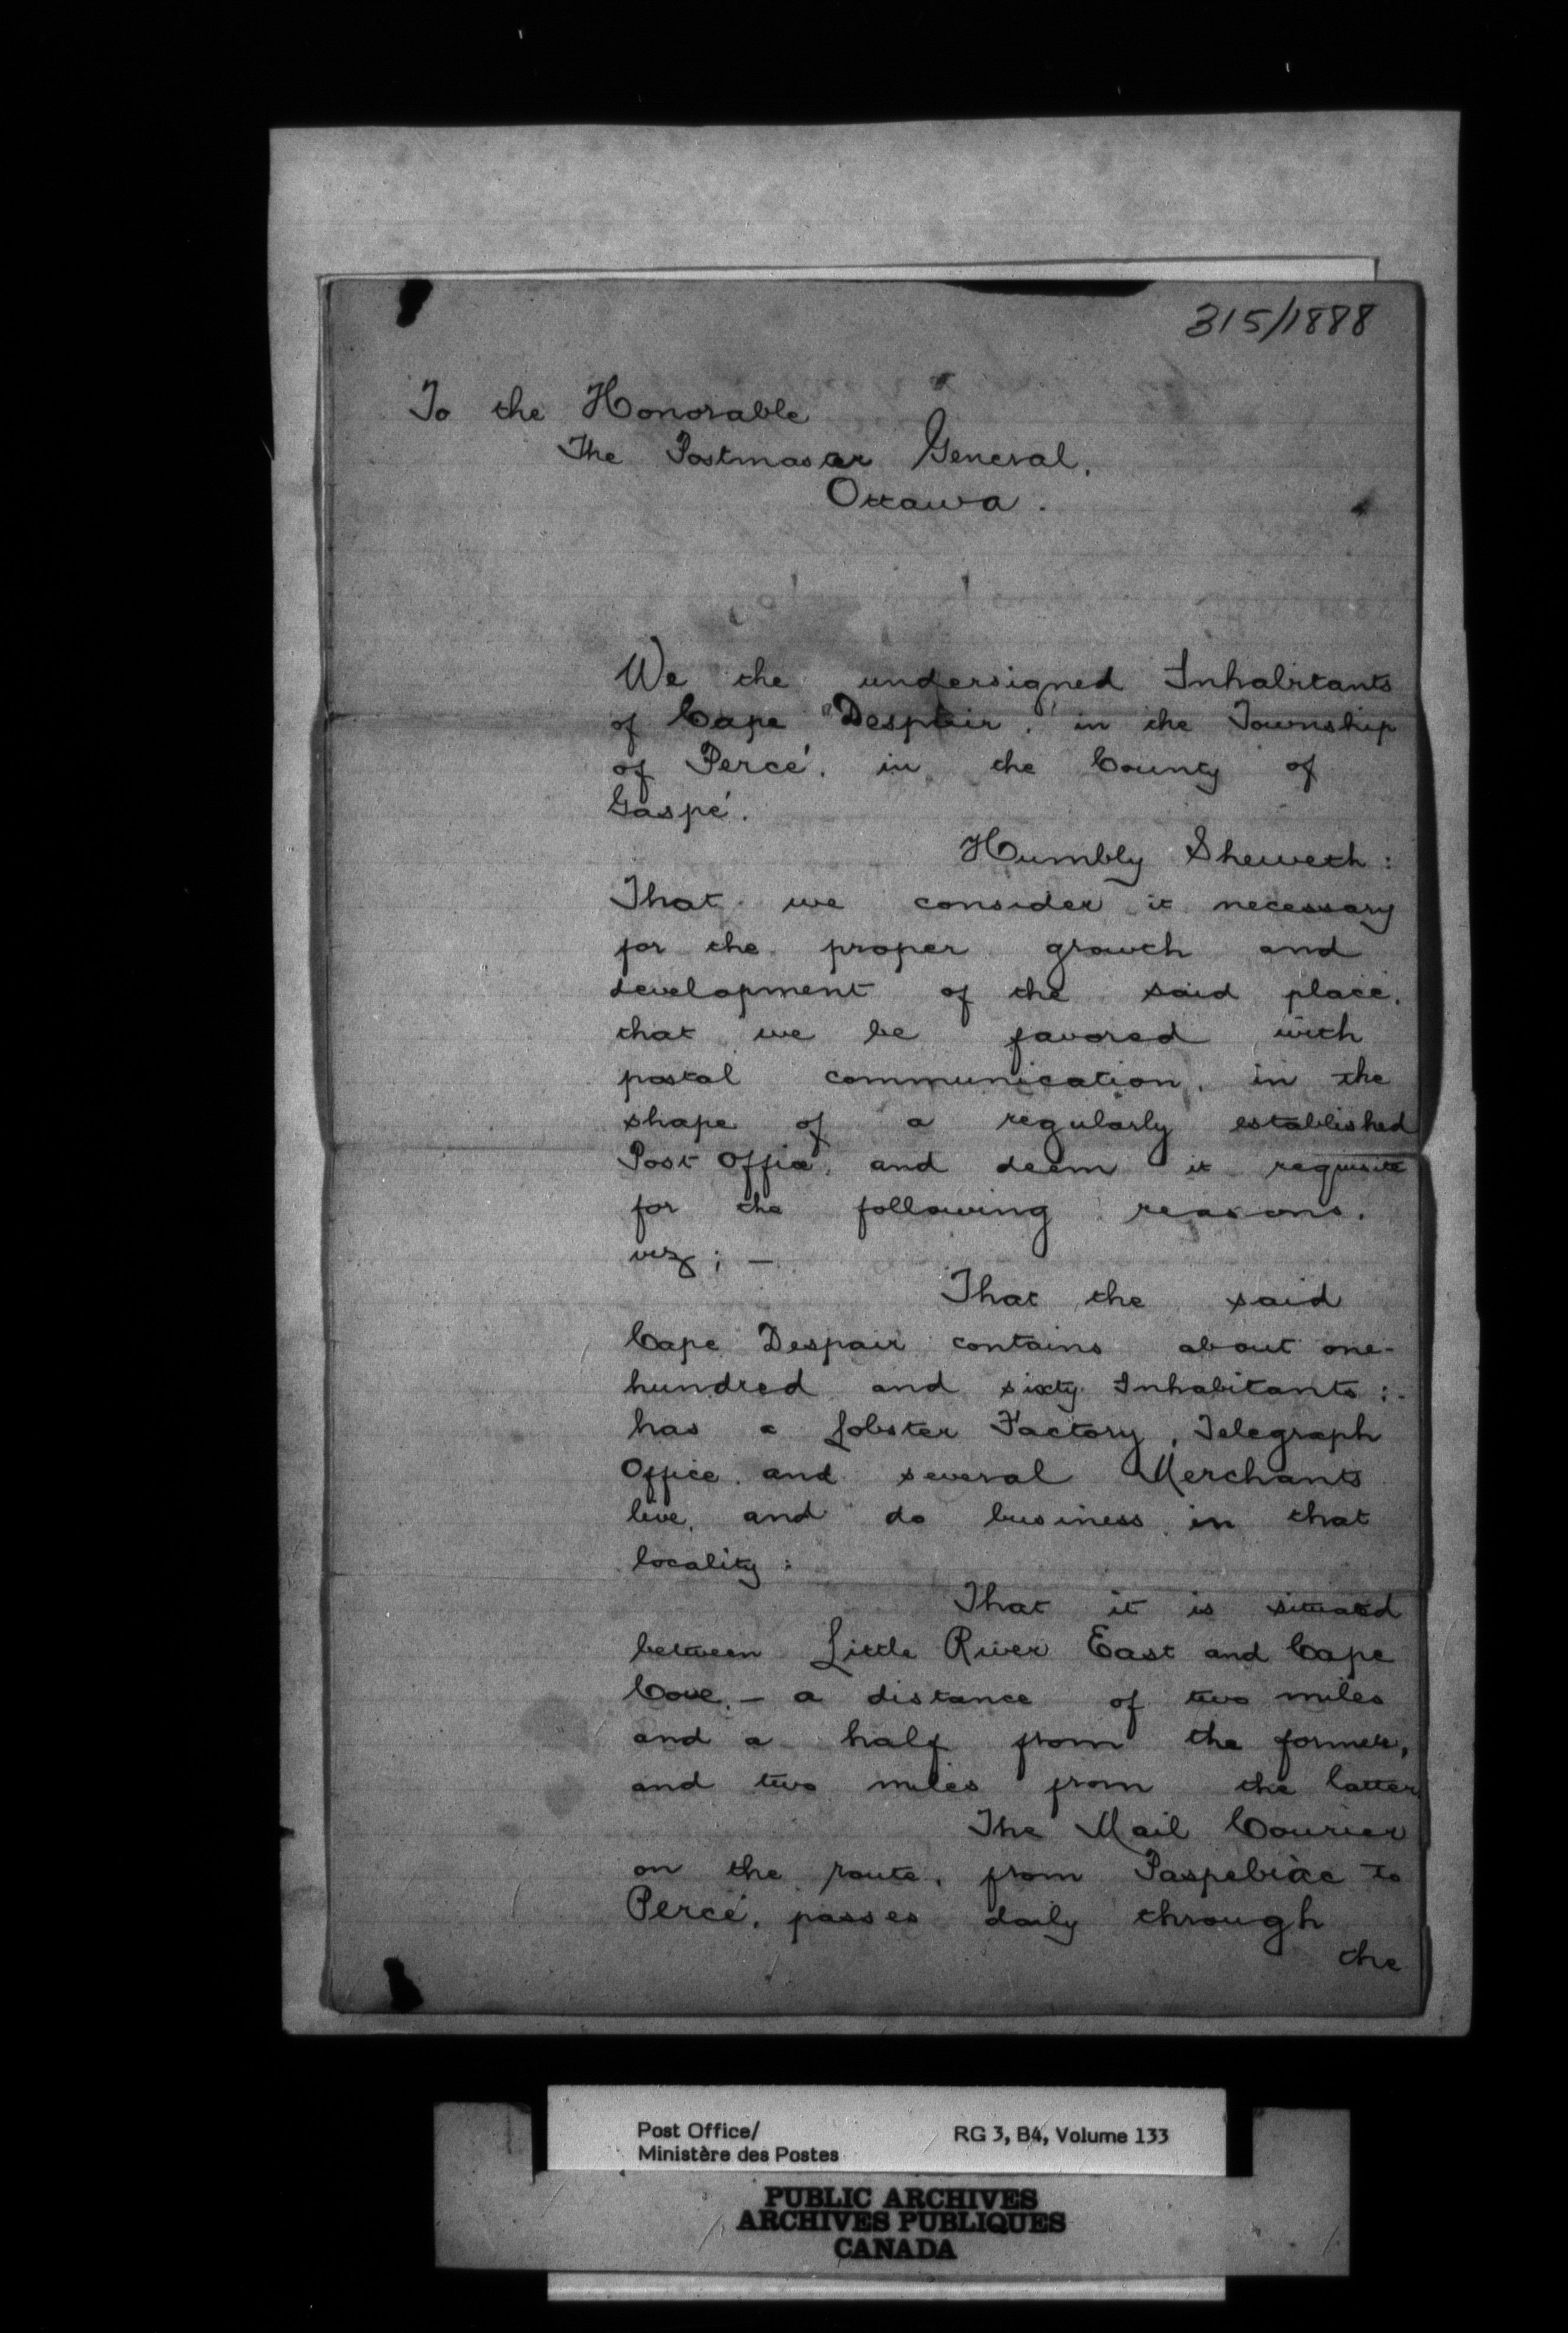 315/1888
To the Honorable
The Postmasar General.
Ottawa.
We the undersigned Inhabitants
of Cape "Despair", in the Township
of Percé, in the County of
Gaspé.
Humbly Sheweth:
That we consider it necessary
for the proper growth and
development of the said place,
that we be favored with
postal communication, in the
shape of a regularly established
Post Office, and deem it requisite
for the following reasons.
viz; —
That the said
Cape Despair contains about one-
hundred and sixty Inhabitants:-
has a Lobster Factory, Telegraph
Office and several Merchants
live, and do business in that
locality:
That it is situated
between Little River East and Cape
Cove. — a distance of two miles
and a half from the former,
and two miles from the latter
The Mail Courier
on the route, from Paspebiac to
Percé, passes daily through
the
Post Office/
Ministère des Postes
RG 3, B4, Volume 133
PUBLIC ARCHIVES
ARCHIVES PUBLIQUES
CANADA